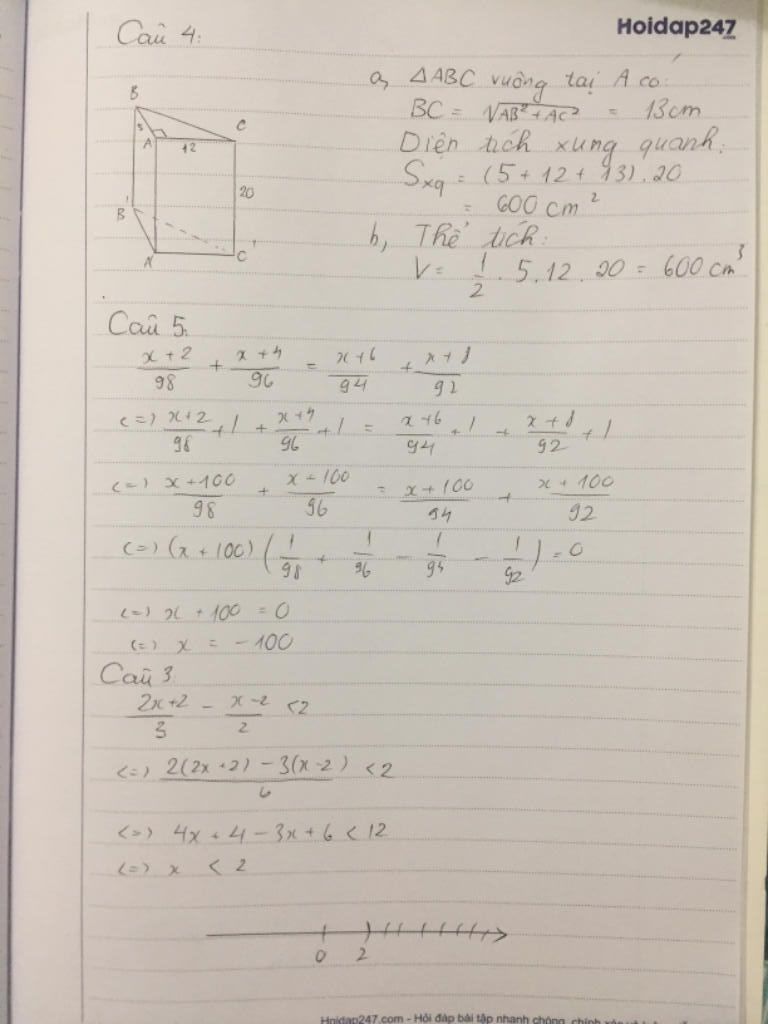 Hoidap247
.com
Câu 4:
a, ΔABC vuông tại A có:
BC = √(AB² + AC²) = 13cm
Diện tích xung quanh:
Sxq = (5 + 12 + 13) . 20
= 600 cm²
b, Thể tích:
V = 1/2 . 5.12.20 = 600 cm³
B
5
A
12
C
20
B'
A'
C'
Câu 5.
(x+2)/98 + (x+4)/96 = (x+6)/94 + (x+8)/92
<=> (x+2)/98 + 1 + (x+4)/96 + 1 = (x+6)/94 + 1 + (x+8)/92 + 1
<=> (x+100)/98 + (x+100)/96 = (x+100)/94 + (x+100)/92
<=> (x+100) (1/98 + 1/96 - 1/94 - 1/92) = 0
<=> x + 100 = 0
<=> x = -100
Câu 3
(2x+2)/3 - (x-2)/2 < 2
<=> (2(2x+2) - 3(x-2))/6 < 2
<=> 4x + 4 - 3x + 6 < 12
<=> x < 2
0 2
Hoidap247.com - Hỏi đáp bài tập nhanh chóng, chính xác